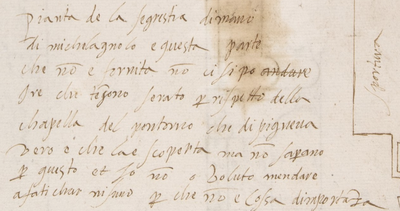 Pianta de la segrestia di mano
di michelagnolo e questa parte
che nō e fornita nō ci si po andare
che tēgono serato p rispetto della
chapella del pontormo che dipigneva
vero e che la e scoperta ma nō sapano
p questo et io nō o voluto mandare
a fatichar nisuno p che nō e cossa dinportāza
portina